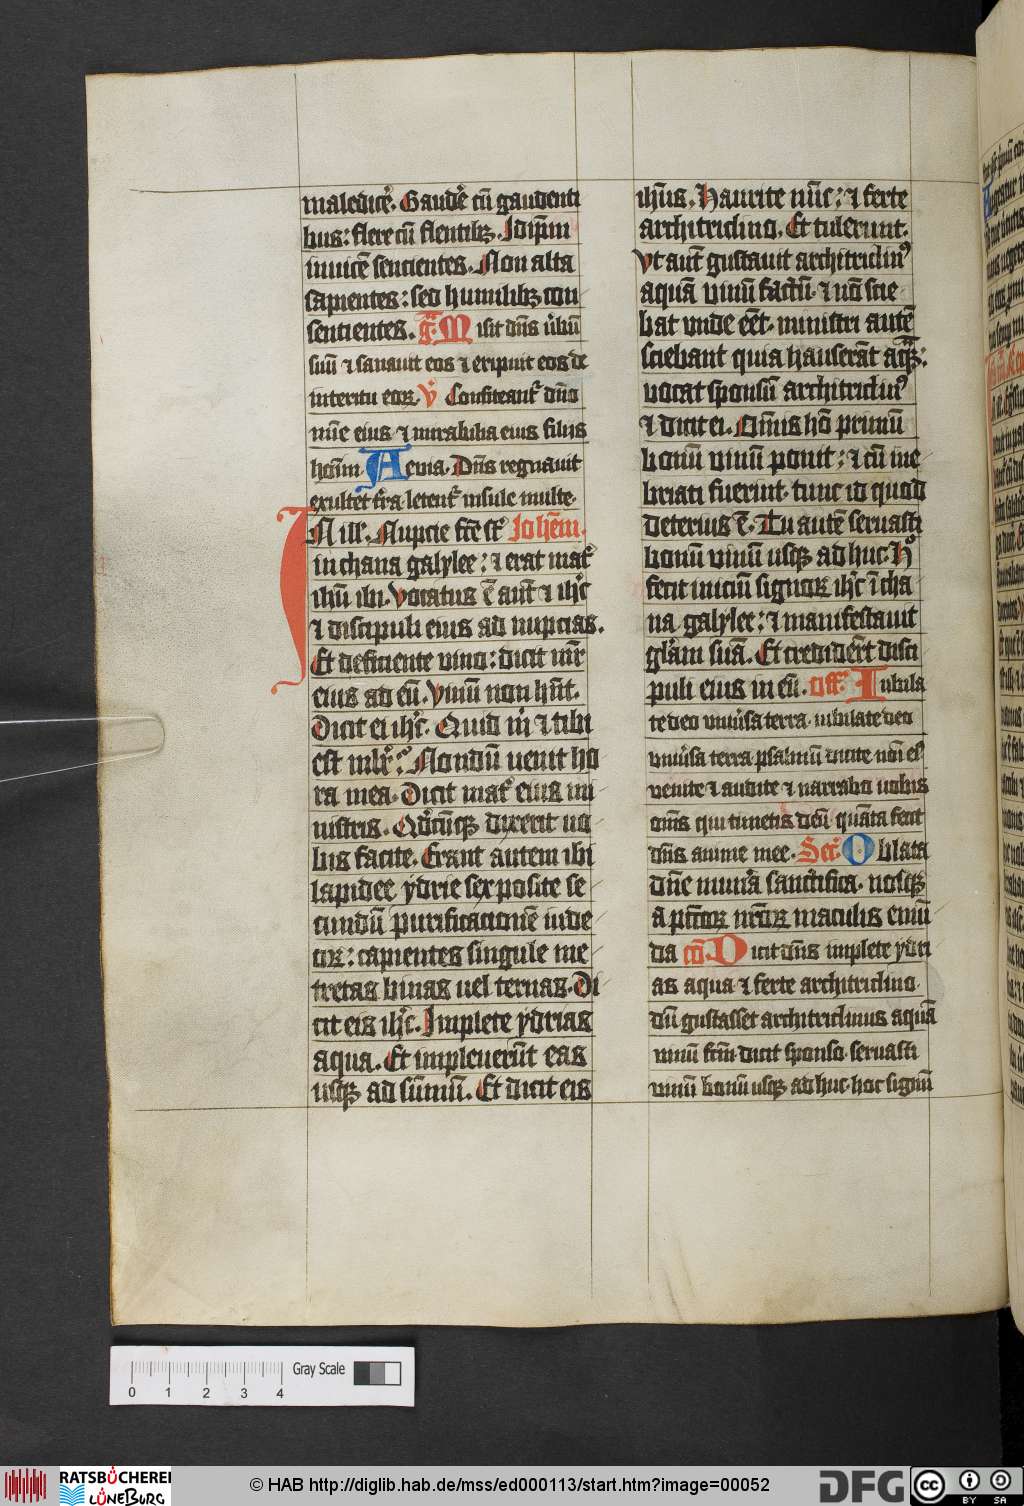 maledicẽ. Gaudẽ cũ gaudenti
bus: flere cũ flentibꝫ. Idip̃m
inuicẽ sencientes. Non alta
sapientes: sed humilibꝫ con
sencientes. G̃. Misit dñs ũbũ
suũ ⁊ sanauit eos ⁊ eripuit eos de
interitu eoꝝ. V̾ Confiteant̾ dño
mie eius ⁊ mirabilia eius filijs
hoĩm. Aeuia. Dñs regnauit
exultet t̾ra letent̾ insule multe.
IN ill̾. Nupcie fc̃e st̾ Johem̃.
in chana galylee: ⁊ erat mat̾
ihũ ibi. Vocatus ẽ aut̃ ⁊ ih̾c
⁊ discipuli eius ad nupcias.
Et deficiente vino: dicit mr̃
eius ad eũ. Vinũ non hñt.
Dicit ei ih̾c. Quid m̾ ⁊ tibi
est mlr̾: Nondũ uenit ho
ra mea. Dicit mat̾ eius mi
nistris. Qd̾cũqꝫ dixerit uo
bis facite. Erant autem ibi
lapidee ydrie sex posite se
cundũ purificacionẽ iude
oꝝ: capientes singule me
tretas binas uel ternas. Di
cit eis ih̾c. Implete ydrias
aqua. Et impleuer̃ut eas
usqꝫ ad sũmũ. Et dicit eis
ihũs. Haurite nũc: ⁊ ferte
architriclino. Et tulerunt.
Vt aut̃ gustauit architriclinꝰ
aquã vinũ factũ. ⁊ nõ scie
bat vnde eẽt. ministri autẽ
sciebant quia hauserãt aq̃ꝫ:
vocat sponsũ architriclinꝰ
⁊ dicit ei. Om̃is hõ primũ
bonũ vinũ ponit: ⁊ cũ ine
briati fuerint. tunc id quod
deterius ẽ. Tu autẽ seruasti
bonũ vinũ usqꝫ ad huc. Hͦ
fecit iniciũ signoꝝ ih̾c ĩ cha
na galylee: ⁊ manifestauit
gl̾am suã. Et credider̃t disci
puli eius in eũ. Off̾. Iubila
te deo vniũsa terra. iubilate deo
vniũsa terra psalmũ dicite noĩ eꝰ
venite ⁊ audite ⁊ narrabo uobis
om̃s qui timetis deũ quãta fecit
dñs anime mee. Sec̃. Oblata
dñe mun̾a sanctifica. nosqꝫ
a pcc̃oꝝ nr̃oꝝ maculis emũ
da cõ. Dicit dñs implete ydri
as aqua ⁊ ferte architriclino.
dũ gustasset architriclinus aquã
vinũ fcm̃ dicit sponso. seruasti
vinũ bonũ usqꝫ ad huc. hoc signũ
0 1 2 3 4
Gray Scale
RATSBÜCHEREI
LÜNEBURG
© HAB http://diglib.hab.de/mss/ed000113/start.htm?image=00052
DFG
cc
BY SA